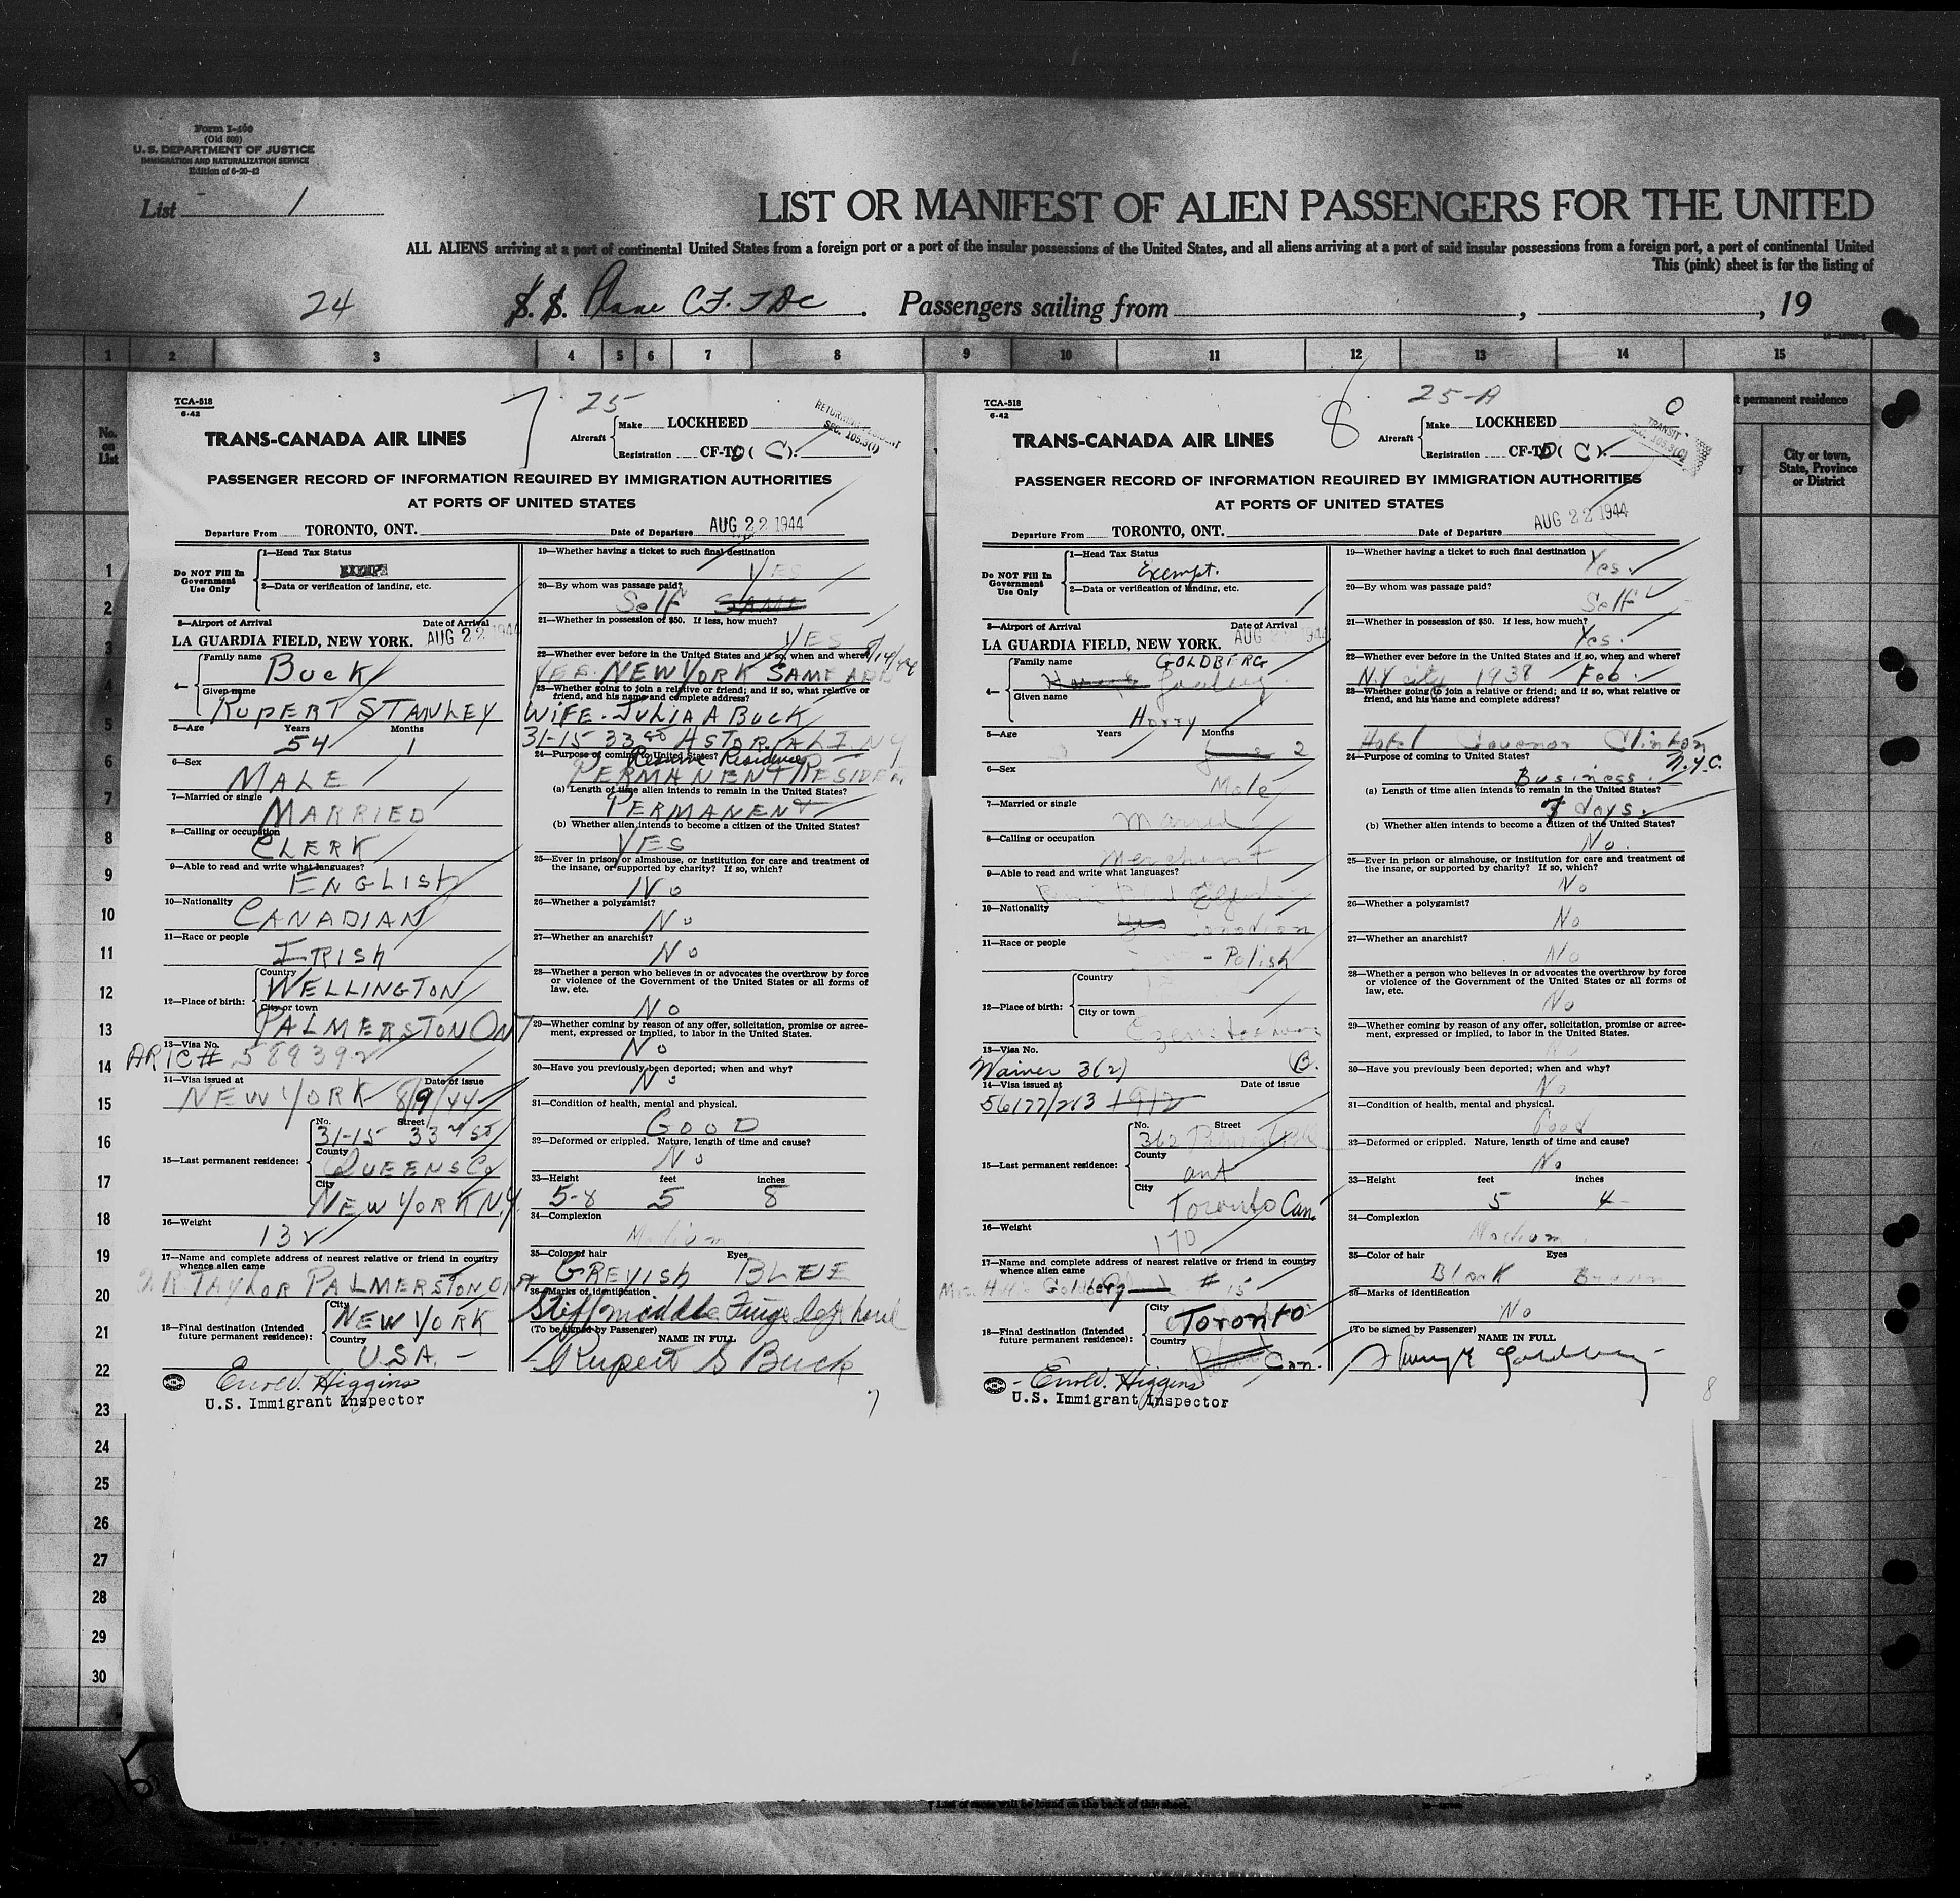 Form I-460
(Old 500)
U. S. DEPARTMENT OF JUSTICE
IMMIGRATION AND NATURALIZATION SERVICE
Edition of 6-20-42
List 1
LIST OR MANIFEST OF ALIEN PASSENGERS FOR THE UNITED
ALL ALIENS arriving at a port of continental United States from a foreign port or a port of the insular possessions of the United States, and all aliens arriving at a port of said insular possessions from a foreign port, a port of continental United
This (pink) sheet is for the listing of
24 S. S. Plane CF. TDC. Passengers sailing from , , 19
1 2 3 4 5 6 7 8 9 10 11 12 13 14 15
No. on List
t permanent residence
City or town, State, Province or District
1
2
3
4
5
6
7
8
9
10
11
12
13
14
15
16
17
18
19
20
21
22
23
24
25
26
27
28
29
30
TCA-518
6-42
7 25
TRANS-CANADA AIR LINES
Aircraft
Make LOCKHEED
Registration CF-TD ( C ).
RETURNING RESIDENT
SEC. 105.3(1)
PASSENGER RECORD OF INFORMATION REQUIRED BY IMMIGRATION AUTHORITIES
AT PORTS OF UNITED STATES
Departure From TORONTO, ONT. Date of Departure AUG 22 1944
Do NOT Fill In Government Use Only
1—Head Tax Status
EXEMPT
2—Data or verification of landing, etc.
3—Airport of Arrival Date of Arrival
LA GUARDIA FIELD, NEW YORK. AUG 22 1944
4— Family name BUCK
Given name RUPERT STANLEY
5—Age Years Months
54 1
6—Sex
MALE
7—Married or single
MARRIED
8—Calling or occupation
CLERK
9—Able to read and write what languages?
ENGLISH
10—Nationality
CANADIAN
11—Race or people
IRISH
12—Place of birth: Country
WELLINGTON
City or town
PALMERSTON ONT
13—Visa No.
ARIC # 589392
14—Visa issued at Date of issue
NEW YORK 8/9/44
15—Last permanent residence: No. Street
31-15 33rd ST
County
QUEENS Co
City
NEW YORK N.Y.
16—Weight
132
17—Name and complete address of nearest relative or friend in country whence alien came
TAYLOR PALMERSTON ONT
18—Final destination (Intended future permanent residence): City
NEW YORK
Country
U.S.A. -
Errol V. Higgins
U.S. Immigrant Inspector
19—Whether having a ticket to such final destination
YES
20—By whom was passage paid?
Self SAME
21—Whether in possession of $50. If less, how much?
YES
22—Whether ever before in the United States and if so, when and where? 8/14/44
YES. NEW YORK SAME ADD
23—Whether going to join a relative or friend; and if so, what relative or friend, and his name and complete address?
WIFE. JULIA A BUCK
31-15 33rd ASTORIA L I N Y
24—Purpose of coming to United States?
Resume Residence
PERMANENT RESIDE
(a) Length of time alien intends to remain in the United States?
PERMANENT
(b) Whether alien intends to become a citizen of the United States?
YES
25—Ever in prison or almshouse, or institution for care and treatment of the insane, or supported by charity? If so, which?
No
26—Whether a polygamist?
No
27—Whether an anarchist?
No
28—Whether a person who believes in or advocates the overthrow by force or violence of the Government of the United States or all forms of law, etc.
No
29—Whether coming by reason of any offer, solicitation, promise or agreement, expressed or implied, to labor in the United States.
No
30—Have you previously been deported; when and why?
No
31—Condition of health, mental and physical.
GOOD
32—Deformed or crippled. Nature, length of time and cause?
No
33—Height feet inches
5-8 5 8
34—Complexion
Medium
35—Color of hair Eyes
GREYISH BLUE
36—Marks of identification
Stiff middle Finger left hand
(To be signed by Passenger) NAME IN FULL
Rupert S Buck
7
TCA-518
6-42
8 25-A
TRANS-CANADA AIR LINES
Aircraft
Make LOCKHEED
Registration CF-TD ( C ).
TRANSIT
SEC. 105.3(c)
PASSENGER RECORD OF INFORMATION REQUIRED BY IMMIGRATION AUTHORITIES
AT PORTS OF UNITED STATES
Departure From TORONTO, ONT. Date of Departure AUG 22 1944
Do NOT Fill In Government Use Only
1—Head Tax Status
Exempt.
2—Data or verification of landing, etc.
3—Airport of Arrival Date of Arrival
LA GUARDIA FIELD, NEW YORK. AUG 22 1944
4— Family name GOLDBERG
Given name Harry
5—Age Years Months
2
6—Sex
Male
7—Married or single
Married
8—Calling or occupation
Merchant
9—Able to read and write what languages?
10—Nationality
Yes Canadian
11—Race or people
- Polish
12—Place of birth: Country
City or town
13—Visa No.
Waiver 3(2) B.
14—Visa issued at Date of issue
56177/213 1912
15—Last permanent residence: No. Street
362
County
ont
City
Toronto Can.
16—Weight
170
17—Name and complete address of nearest relative or friend in country whence alien came
Goldberg # 15
18—Final destination (Intended future permanent residence): City
Toronto
Country
Can.
- Errol V. Higgins
U.S. Immigrant Inspector
19—Whether having a ticket to such final destination
Yes.
20—By whom was passage paid?
Self
21—Whether in possession of $50. If less, how much?
Yes.
22—Whether ever before in the United States and if so, when and where?
N.Y city 1938 Feb.
23—Whether going to join a relative or friend; and if so, what relative or friend, and his name and complete address?
Hotel Govenor Clinton
N.Y.C.
24—Purpose of coming to United States?
Business.
(a) Length of time alien intends to remain in the United States?
7 days.
(b) Whether alien intends to become a citizen of the United States?
No.
25—Ever in prison or almshouse, or institution for care and treatment of the insane, or supported by charity? If so, which?
No
26—Whether a polygamist?
No
27—Whether an anarchist?
No
28—Whether a person who believes in or advocates the overthrow by force or violence of the Government of the United States or all forms of law, etc.
No
29—Whether coming by reason of any offer, solicitation, promise or agreement, expressed or implied, to labor in the United States.
No
30—Have you previously been deported; when and why?
No
31—Condition of health, mental and physical.
Good
32—Deformed or crippled. Nature, length of time and cause?
No
33—Height feet inches
5 4
34—Complexion
Medium.
35—Color of hair Eyes
Black Brown
36—Marks of identification
No
(To be signed by Passenger) NAME IN FULL
Goldberg
8
† List of races will be found on the back of this sheet.